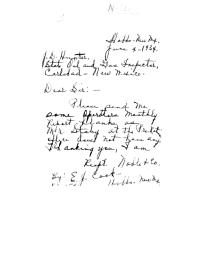 Hobbs - New Mex.
June 4 - 1934.
State Oil and Gas Inspector,
Carlsbad - New Mexico.
Dear Sir: -
Please send me
some Operators Monthly
Report blanks, as
Mr. at the
office does not have any
Thanking you, I am
Respt.
By: E. J. Cook
Hobbs, New Mex